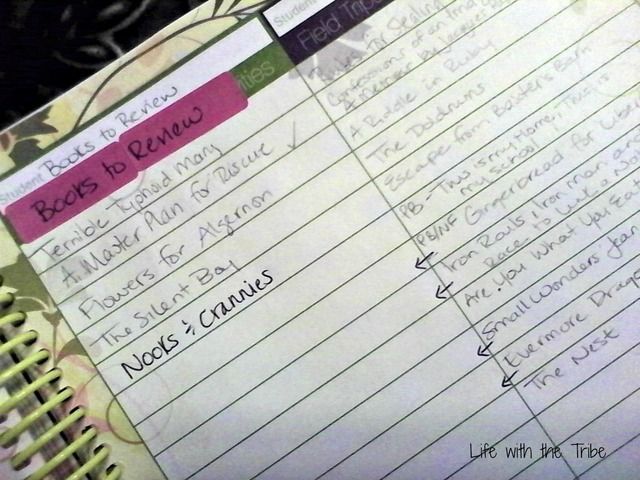 Student Books to Review
ities
Books to Review
Terrible Typhoid Mary
A Master Plan for Rescue ✓
Flowers for Algernon
The Silent Boy
Nooks & Crannies
Student
Field Trips
Rules for Stealing
Confessions of an Imag
A Memoir by Jacques
A Riddle in Ruby
The Doldrums
Escape from Baxter's Barn
PB - This is my Home, This is
my school
PB/NF Gingerbread for Liber
Iron Rails, Iron Men, and
Race to Link a Na
Are You What You Ea
Small Wonders: Jean
Evermore Drag
The Nest
Life with the Tribe